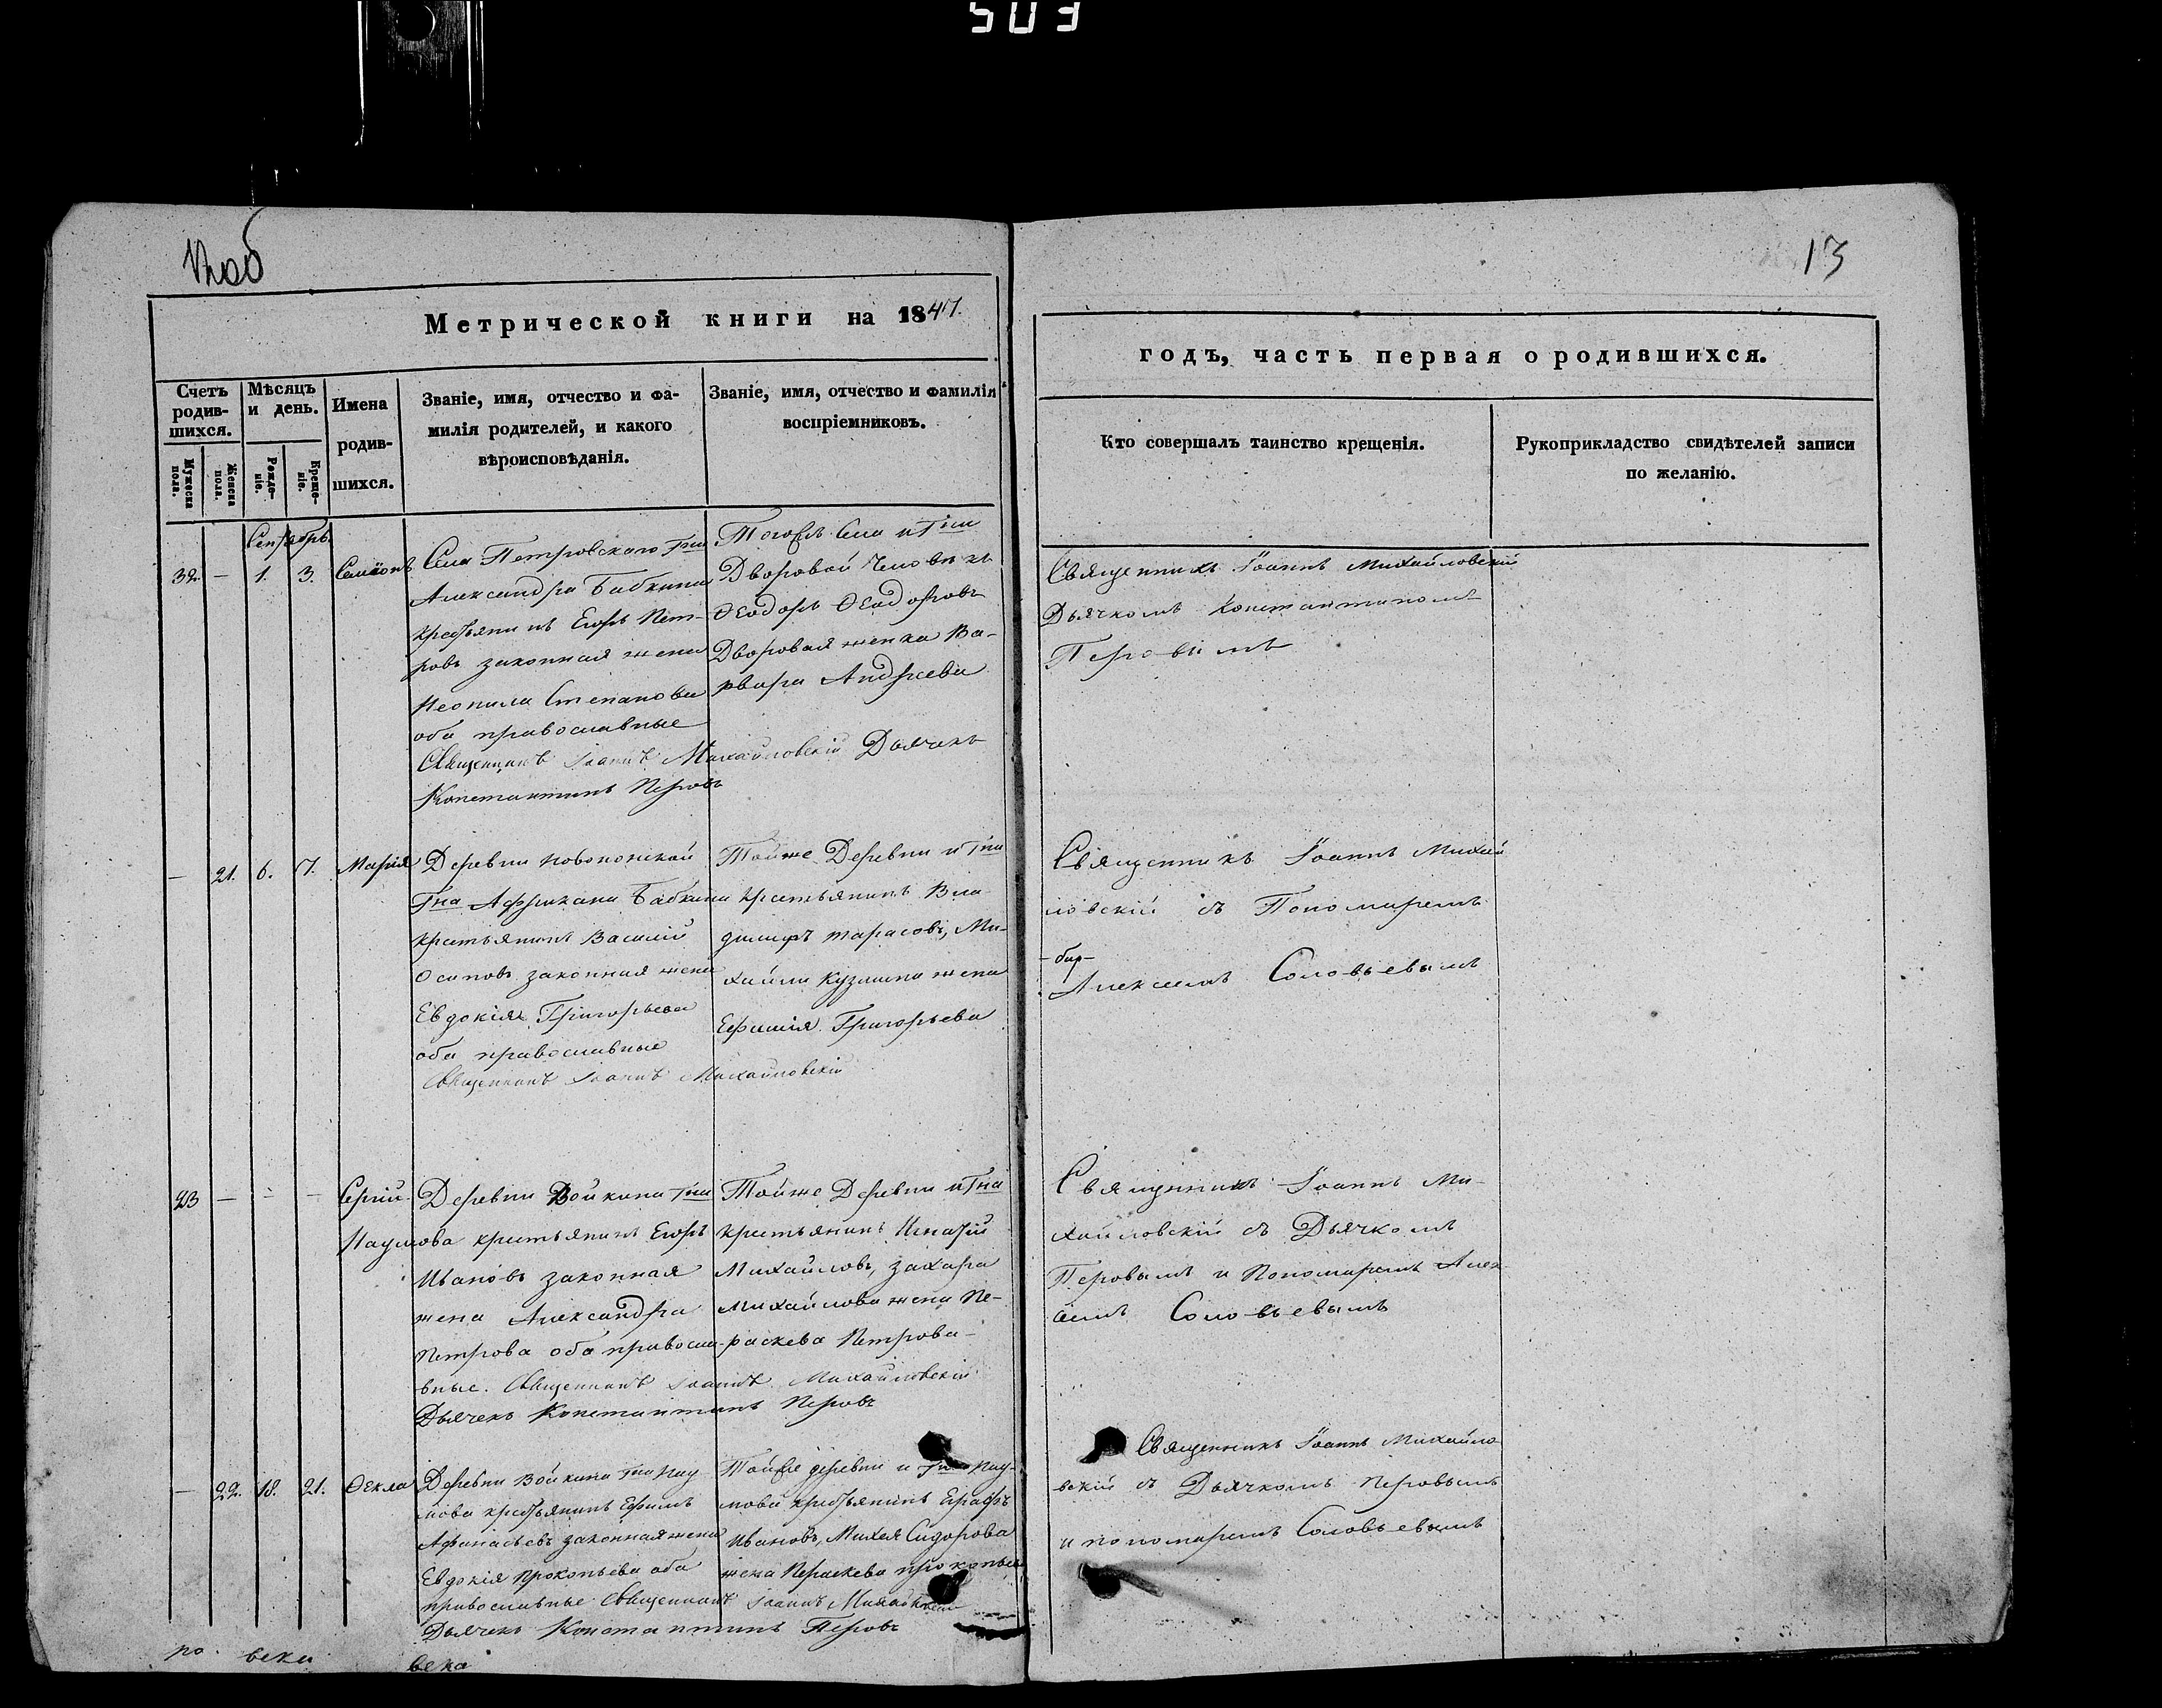 503
12об
13
Метрической книги на 1847.
годъ, часть первая о родившихся.
Счетъ родив-шихся.
Мѣсяцъ и день.
Имена родив-шихся.
Званіе, имя, отчество и фа-
милія родителей, и какого
вѣроисповѣданія.
Званіе, имя, отчество и фамилія
воспріемниковъ.
Кто совершалъ таинство крещенія.
Рукоприкладство свидѣтелей записи
по желанію.
Мужеска пола.
Женска пола.
Рожде-ніе.
Креще-ніе.
Сентябрь.
32. — 1. 3. Семіонъ
Села Петровскаго Гна
Александра Бабкина
крестьянинъ Егоръ Пет-
ровъ законная жена
Неонила Степанова
оба православные
Тогожъ Села и Гна
Дворовой Человѣкъ
Ѳеодоръ Ѳеодоровъ
Дворовая женка Ва-
рвара Андреева
Священникъ Іоаннъ Михайловскій Дьячекъ
Константинъ Перовъ
Священникъ Іоаннъ Михайловскій
Дьячкомъ Константиномъ
Перовымъ
— 21. 6. 7. Марія
Деревни
Гна Африкана Бабкина
крестьянинъ Василій
Осиповъ законная жена
Евдокія Григорьева
оба православные
Тойже Деревни и Гна
крестьянинъ Вла-
димиръ Тарасовъ, Ми-
хайла Кузмина жена
Ефимія Григорьева
Священникъ Іоаннъ Михайловскій
Священникъ Іоаннъ Михай
ловскій съ Пономаремъ
Алексеемъ Соловьевымъ
— — — Сергий
Деревни Войкина Гна
Наумова крестьянинъ Егоръ
Ивановъ законная
жена Александра
Петрова оба правосла-
вные. Священникъ Іоаннъ Михайловскій
Дьячекъ Константинъ Перовъ
Тойже Деревни и Гна
крестьянинъ Игнатій
Михайловъ, Захара
Михайлова жена Пе-
раскева Петрова
Священникъ Іоаннъ Ми-
хайловскій съ Дьячкомъ
Перовымъ и Пономаремъ Алек
сеемъ Соловьевымъ
— 22. 18. 21. Ѳекла
Деревни Войкина Гна Нау-
мова крестьянинъ Ефимъ
Афанасьевъ законная жена
Евдокія Прокопьева оба
православные Священникъ Іоаннъ Михайловскій
Дьячекъ Константинъ Перовъ
Тойже деревни и Гна Нау-
мова крестьянинъ
Ивановъ, Михея Сидорова
жена Пераскева Прокопьева
Священникъ Іоаннъ Михайло
вскій съ Дьячкомъ Перовымъ
и пономаремъ Соловьевымъ